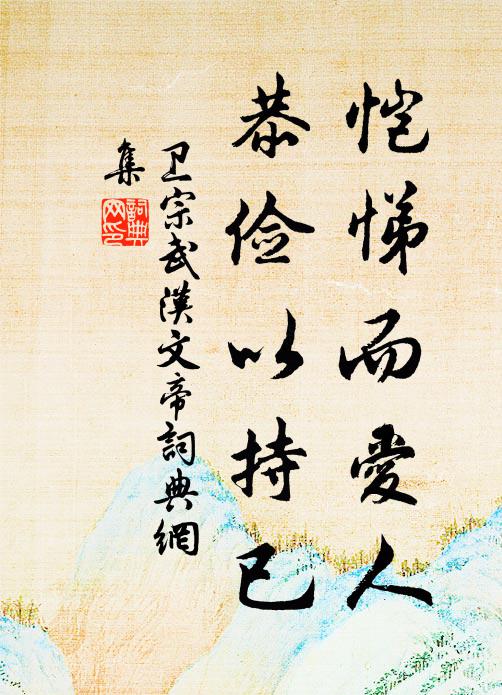 恺悌而愛人
恭俭以持已
卫宗武漢文帝詞典網
集
詞典
网印